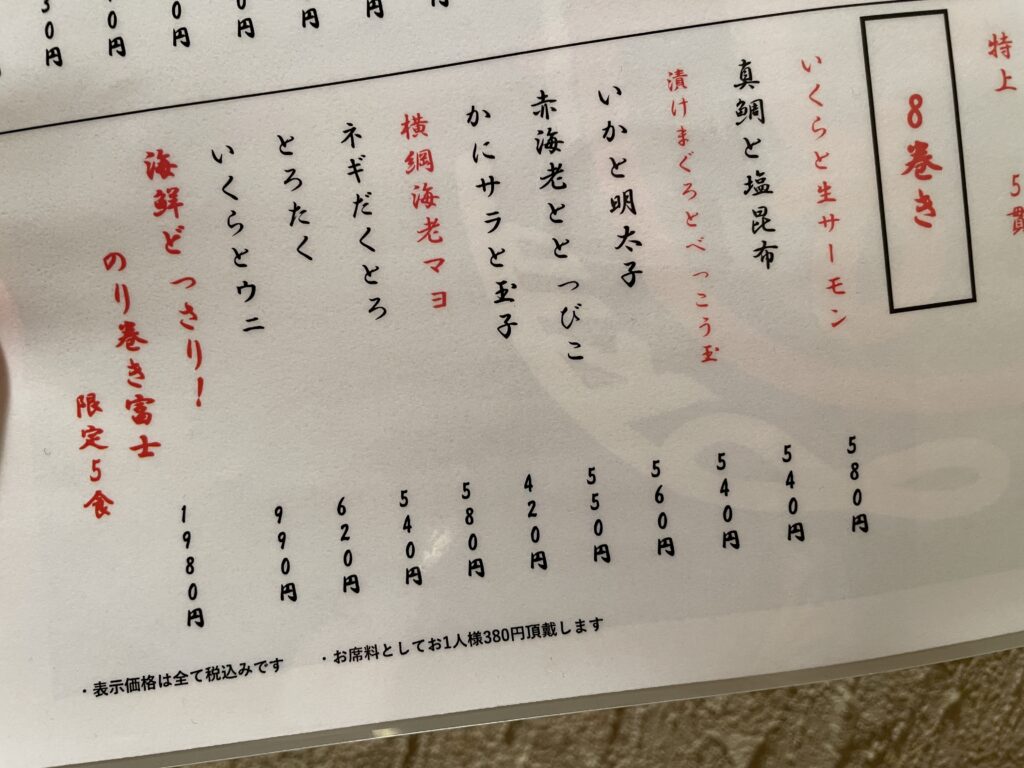 特上 5貫
8巻き
いくらと生サーモン 580円
真鯛と塩昆布 540円
漬けまぐろとべっこう玉 540円
いかと明太子 560円
赤海老ととっびこ 550円
かにサラと玉子 420円
横綱海老マヨ 580円
ネギだくとろ 540円
とろたく 620円
いくらとウニ 990円
海鮮どっさり!
のり巻き富士
限定5食 1980円
・お席料としてお1人様380円頂戴します
・表示価格は全て税込みです